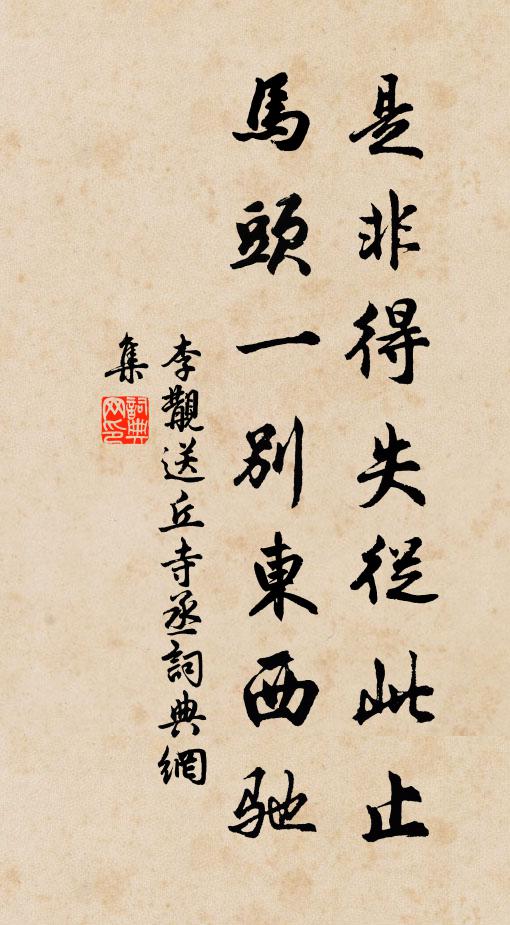 是非得失從此止
馬頭一別東西馳
李覯送丘寺丞詞典網
集
詞典
网印